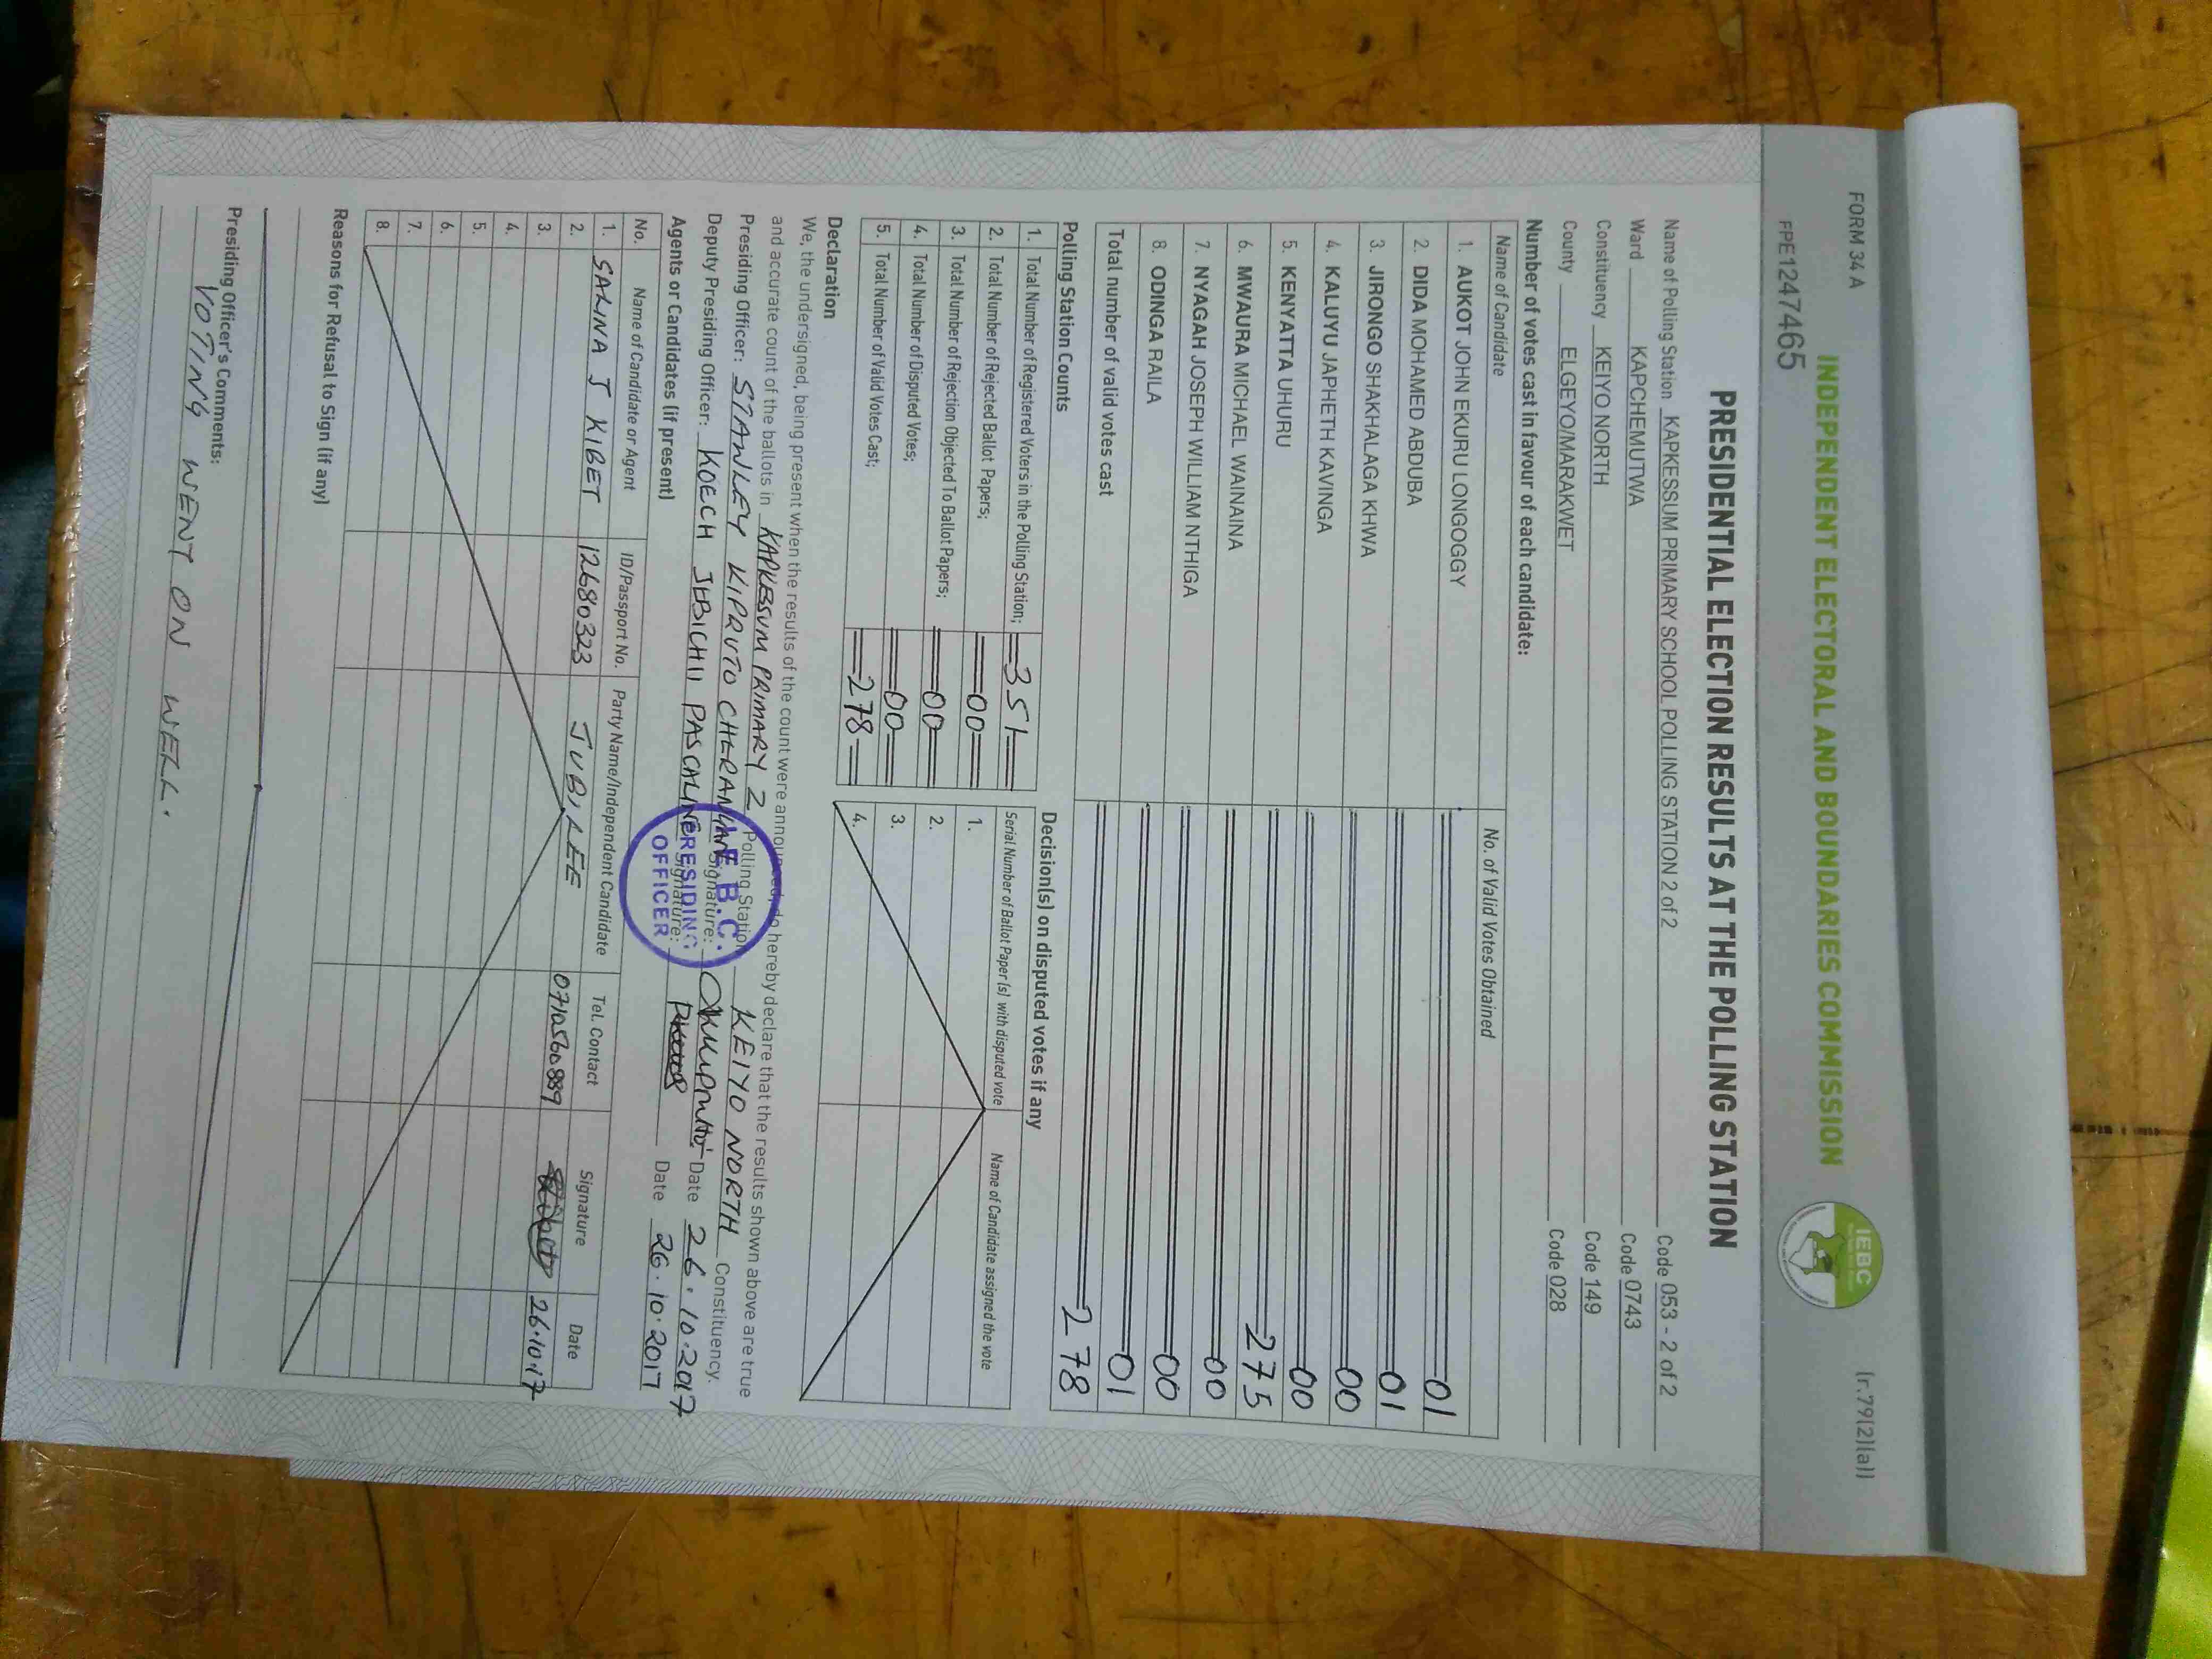 FORM 34 A
(r.79(2)(a))
INDEPENDENT ELECTORAL AND BOUNDARIES COMMISSION
IEBC
FPE1247465
PRESIDENTIAL ELECTION RESULTS AT THE POLLING STATION
Name of Polling Station KAPKESSUM PRIMARY SCHOOL POLLING STATION 2 of 2 Code 053 - 2 of 2
Ward KAPCHEMUTWA Code 0743
Constituency KEIYO NORTH Code 149
County ELGEYO/MARAKWET Code 028
Number of votes cast in favour of each candidate:
Name of Candidate No. of Valid Votes Obtained
1. AUKOT JOHN EKURU LONGOGGY 01
2. DIDA MOHAMED ABDUBA 01
3. JIRONGO SHAKHALAGA KHWA 00
4. KALUYU JAPHETH KAVINGA 00
5. KENYATTA UHURU 275
6. MWAURA MICHAEL WAINAINA 00
7. NYAGAH JOSEPH WILLIAM NTHIGA 00
8. ODINGA RAILA 01
Total number of valid votes cast 278
Polling Station Counts
1. Total Number of Registered Voters in the Polling Station; 351
2. Total Number of Rejected Ballot Papers; 00
3. Total Number of Rejection Objected To Ballot Papers; 00
4. Total Number of Disputed Votes; 00
5. Total Number of Valid Votes Cast; 278
Decision(s) on disputed votes if any
Serial Number of Ballot Paper (s) with disputed vote Name of Candidate assigned the vote
1.
2.
3.
4.
Declaration
We, the undersigned, being present when the results of the count were announced, do hereby declare that the results shown above are true
and accurate count of the ballots in KAPKESSUM PRIMARY 2 Polling Station KEIYO NORTH Constituency.
Presiding Officer: STANLEY KIPRUTO Signature: Date 26.10.2017
Deputy Presiding Officer: KOECH JEBICHII PASCALINE Signature: Date 26.10.2017
I.E.B.C.
PRESIDING
OFFICER
Agents or Candidates (if present)
No. Name of Candidate or Agent ID/Passport No. Party Name/Independent Candidate Tel. Contact Signature Date
1. SALINA J KIBET 12680323 JUBILEE 0710560889 26.10.17
2.
3.
4.
5.
6.
7.
8.
Reasons for Refusal to Sign (if any)
Presiding Officer's Comments:
VOTING WENT ON WELL.